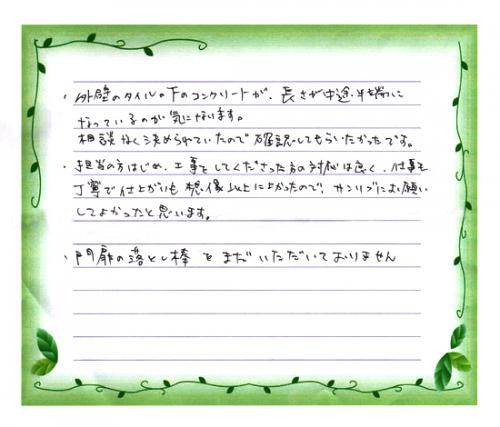 ・外壁のタイルの下のコンクリートが、長さが中途半端に
なっているのが気になります。
相談なく決められていたので確認してもらいたかったです。
・担当の方はじめ、工事をしてくださった方の対応は良く、仕事も
丁寧で仕上がりも想像以上によかったので、サンリブにお願い
してよかったと思います。
・門扉の落とし棒をまだいただいておりません